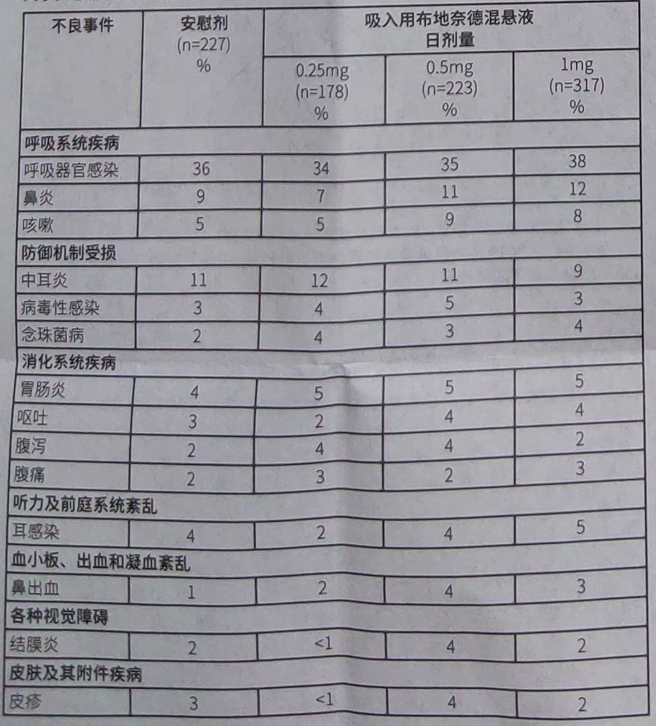 不良事件 安慰剂 吸入用布地奈德混悬液
(n=227) 日剂量
% 0.25mg 0.5mg 1mg
(n=178) (n=223) (n=317)
% % %
呼吸系统疾病
呼吸器官感染 36 34 35 38
鼻炎 9 7 11 12
咳嗽 5 5 9 8
防御机制受损
中耳炎 11 12 11 9
病毒性感染 3 4 5 3
念珠菌病 2 4 3 4
消化系统疾病
胃肠炎 4 5 5 5
呕吐 3 2 4 4
腹泻 2 4 4 2
腹痛 2 3 2 3
听力及前庭系统紊乱
耳感染 4 2 4 5
血小板、出血和凝血紊乱
鼻出血 1 2 4 3
各种视觉障碍
结膜炎 2 <1 4 2
皮肤及其附件疾病
皮疹 3 <1 4 2